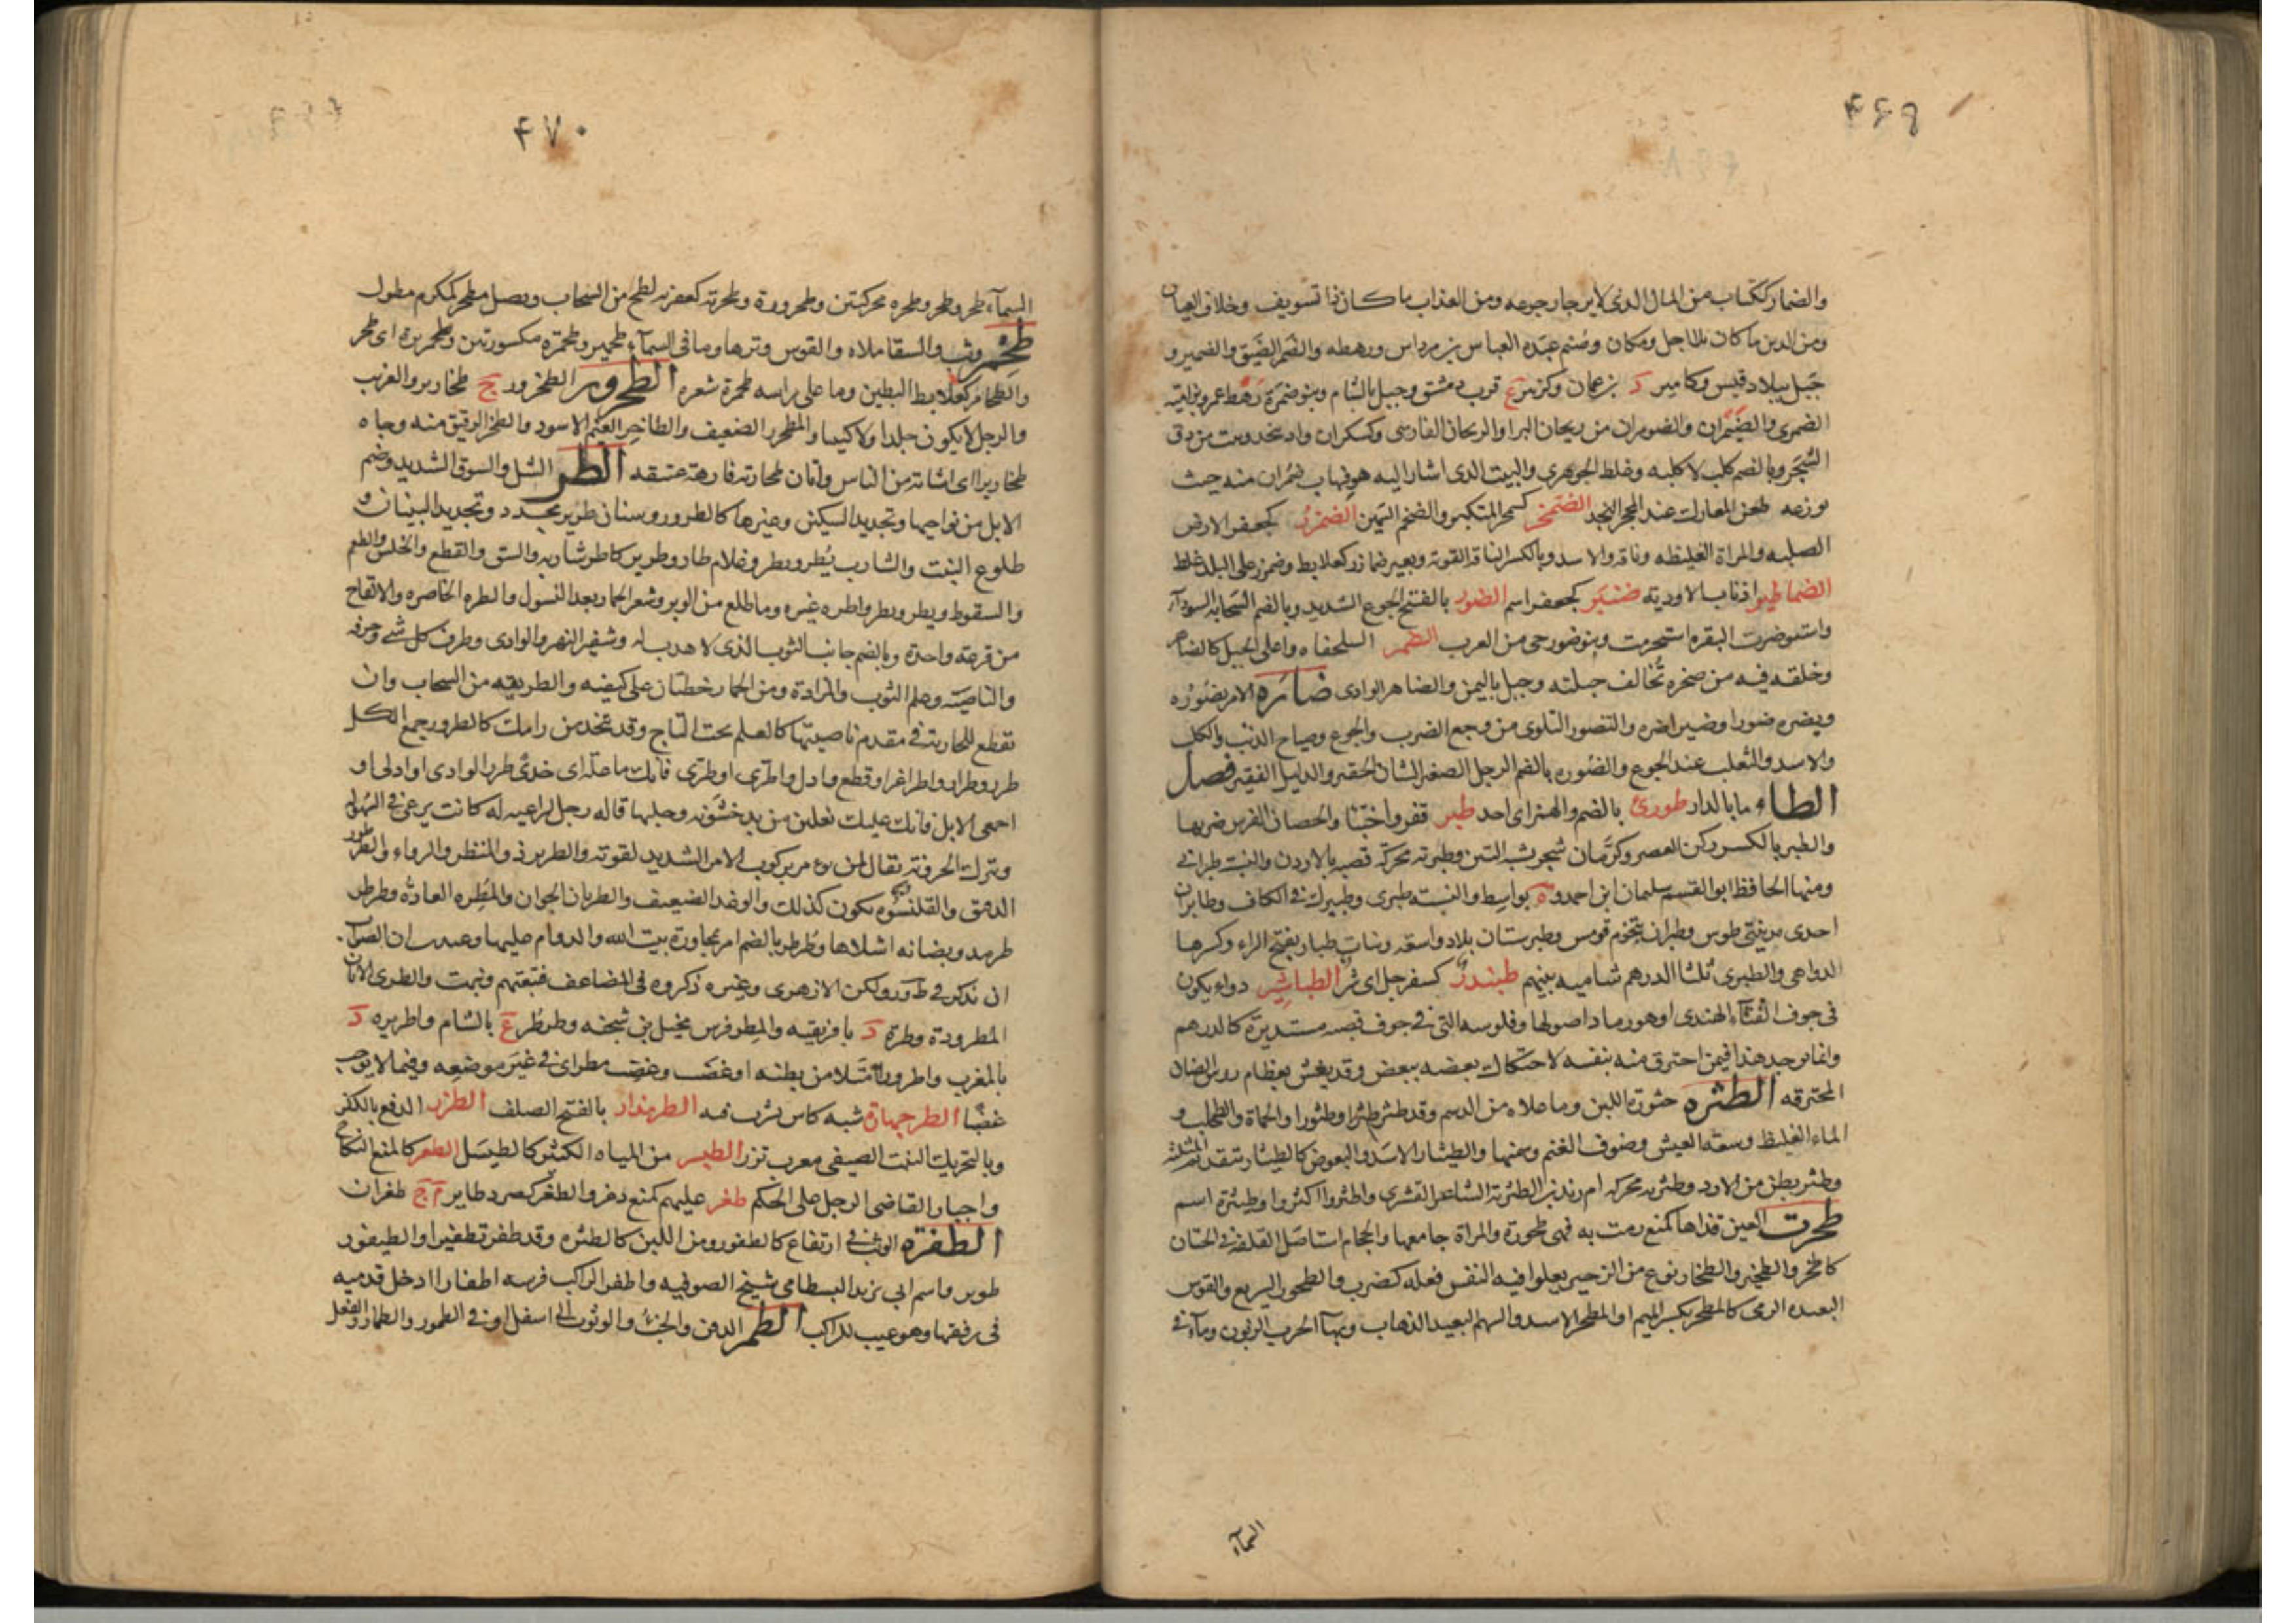 ٤٦٩
والضمار ككتاب من المال الذى لا يرجا رجوعه ومن العذاب ما كان ذا تسويف وخلاف العيان
ومن الدين ما كان بلا اجل ومكان وصنم عبده العباس بن مرداس ورهطه والضمر الضيق والضمير و
جبل ببلاد قيس وكامير د بزعمان وكزبير ع قرب دمشق وجبل بالشام وبنو ضمرة رهط عمرو بن امية
الضمرى والضيمران والضومران من ريحان البر او الريحان الفارسى وكسكران واد بنجد وبيت من دق
الشجر وبالضم كلب لا كلبه وغلط الجوهرى والبيت الذى اشار اليه هو فهاب ضمران منه حيث
يوزعه طعن المعارك عند المحجر النجد الضمخر كشمخر المتكبر والضخم السمين الضمزر كجعفر الارض
الصلبه والمراة الغليظه وناقه والاسد وبالكسر الناقة القوية وبعير ضمازر كعلابط وضمزر على البلد غلظ
الضماطير اذناب الاودية ضنبر كجعفر اسم الضور بالفتح الجوع الشديد وبالضم السحابة السودآ
واستوضرت البقره استحرمت وبنو ضور حى من العرب الضهر السلحفاه واعلى الجبل كالضاهر
وخلقه فيه من صخره تخالف جبلته وجبل باليمن والضاهر الوادى ضاره الامر يضوره
ويضيره ضورا وضيرا ضره والتضور التلوى من وجع الضرب والجوع وصياح الذئب والكلب
والاسد والثعلب عند الجوع والضوره بالضم الرجل الصغير الشان الحقير والذليل الفقير فصل
الطاء ما بالدار طورى بالضم والهمز اى احد طبر قفز واختبا والحصان الفرس ضربها
والطبر بالكسر ركن القصر وكرمان شجر يشبه التين وطبرية محركة قصبه بالاردن والنسبه طبرانى
ومنها الحافظ ابو القسم سليمان ابن احمد وة بواسط والنسبة طبرى وطبيرك فى الكاف وطابران
احدى مدينتى طوس وطبران بتخوم قومس وطبرستان بلاد واسعه وبنات طبار بفتح الراء وكسرها
الدواهى والطبرى ثلثا الدرهم شاميه بينهم طبندر كسفرجل اى شر الطباشير دواء يكون
فى جوف القناء الهندى او هو رماد اصولها وفلوسه التى فى جوف قصبه مستديرة كالدرهم
وانما يوجد هذا فيمن احترق منه بنفسه لاحتكاك بعضه ببعض وقد يغش بعظام روس الضان
المحترقه الطثره خثورة اللبن وما علاه من الدسم وقد طثر طثرا وطثورا والحماة والطحلب و
الماء الغليظ وسعة العيش وصوف الغنم وسمنها والطيثار الاسد والبعوض كالطيثار بتقديم المثلثه
وطثر بطن من الازد وطثريه محركه ام يزيد بن الطثرية الشاعر القشرى واطثروا اكثروا وطيثرة اسم
طحرت العين قذاها كمنع رمت به فهى طحورة والمراة جامعها والحجام استاصل القلفه فى الختان
كاطحر والطحير والطحار نوع من الزحير يعلوا فيه النفس فعله كضرب والطحور السريع والقوس
البعيده الرمى كالمطحر بكسر الميم او المطحر الاسد والسهم البعيد الذهاب وبهآ الحرب الزبون وما فى
السمآء
٤٧٠
السمآء طحر وطحر وطحره محركتين وطحرورة وطحرية كعفرية لطخ من السحاب ونصل مطحر كمكرم مطول
طحمر وثب والسقا ملاه والقوس وترها وما فى السمآء طحمير وطحمرة مكسورتين وطحمريرة اى طحر
والطحامر كعلابط البطين وما على راسه طحمرة شعره الطخرور الطحرور ج طخارير والغريب
والرجل لا يكون جلدا ولا كثيفا والمطخر الضعيف والطاخر الغيم الاسود والطخر الرقيق منه وجاه
طخارير اى اشابة من الناس واتان طخارية فارهة عتيقه الطر الشل والسوق الشديد وضم
الابل من نواحيها وتحديد السكين وغيرها كالطرور وسنان طرير محدد وتجديد البنيان و
طلوع النبت والشارب يطر ويطر وغلام طار وطرير كاطر شاربه والشق والقطع والخلس واللطم
والسقوط ويطر ويطر واطره غيره وما طلع من الوبر وشعر الحمار بعد النسول والطره الخاصره والالقاح
من قرعة واحدة وبالضم جانب الثوب الذى لا هدب له وشفير النهر والوادى وطرف كل شى وحرفه
والناصية وعلم الثوب والمزادة ومن الحمار خطتان على كتفيه والطريقه من السحاب وان
تقطع للجارية فى مقدم ناصيتها كالعلم تحت التاج وقد تتخذ من رامك كالطرور جمع الكل
طرر وطرار واطرا غرا وقطع وادل واطرى او طرى فانك ناعلة اى خذى طرر الوادى او ادلى او
اجمعى الابل فانك عليك نعلين من يد خشونة رجليها قاله رجل لراعية له كانت ترعى فى السهولة
وتترك الحزونة يقال لمن يومر بركوب الامر الشديد لقوته والطرير ذو المنظر والرواء والطرطور
الدقيق والقلنسوه تكون كذلك والوغد الضعيف والطريان الخوان والمطره العادة وطرطر
طرمذ وبضانه اشلاها وطرطر بالضم امر بمجاورة بيت الله والدوام عليها وعندى ان الصواب
ان تذكر فى ط ور ولكن الازهرى وغيره ذكروه فى المضاعف فتبعتهم ونبهت والطرى الاتان
المطرودة وطرة د بافريقيه والمطر فرس محيل بن شجنه وطرطر ع بالشام واطريره د
بالمغرب واطرورا امتلا من بطنه او غضب وغضب مطر اى فى غير موضعه وفيما لا يوجب
غضبا الطرجهارة شبه كاس يشرب فيه الطرمذار بالفتح الصلف الطزر الدفع بالكز
وبالتحريك النبت الصيفى معرب تزر الطيسر من المياه الكثير كالطيسل الطعر كالمنع النكاح
واجبار القاضى الرجل على الحكم طغر عليهم كمنع دغر والطغر كصرد طاير ج طغران
الطفرة الوثب فى ارتفاع كالطفور ومن اللبن كالطثره وقد طفر تطفيرا والطيفور
طوير واسم ابى يزيد البسطامى شيخ الصوفيه واطفر الراكب فرسه اطفارا ادخل قدميه
فى رفقيها وهو عيب للراكب الطمر الدفن والخبء والوثوب الى اسفل او فى الطمور والطمار والفعل